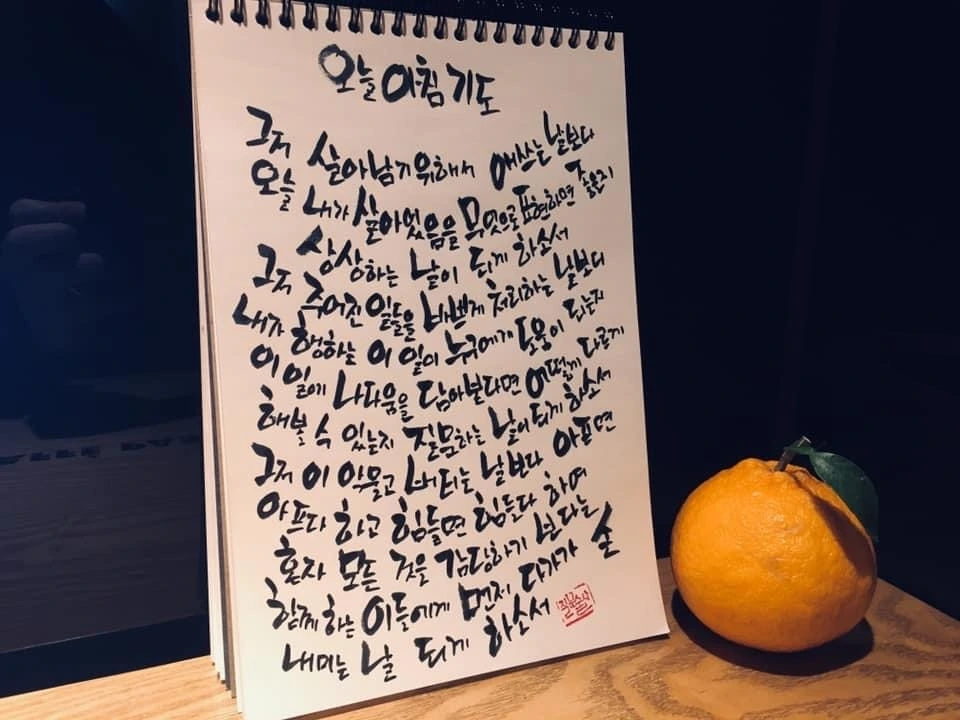 오늘 아침 기도
그저 살아남기 위해서 애쓰는 날보다
오늘 내가 살아있음을 무엇으로 표현하면 좋은지
상상하는 날이 되게 하소서
그저 주어진 일들을 바쁘게 처리하는 날보다
내가 행하는 이 일이 누구에게 도움이 되는지
이 일에 나다움을 담아본다면 어떻게 다르게
해볼 수 있는지 질문하는 날이 되게 하소서
그저 이 악물고 버티는 날보다 아프면
아프다 하고 힘들면 힘들다 하며
혼자 모든 것을 감당하기 보다는
함께 하는 이들에게 먼저 다가가 손
내미는 날 되게 하소서